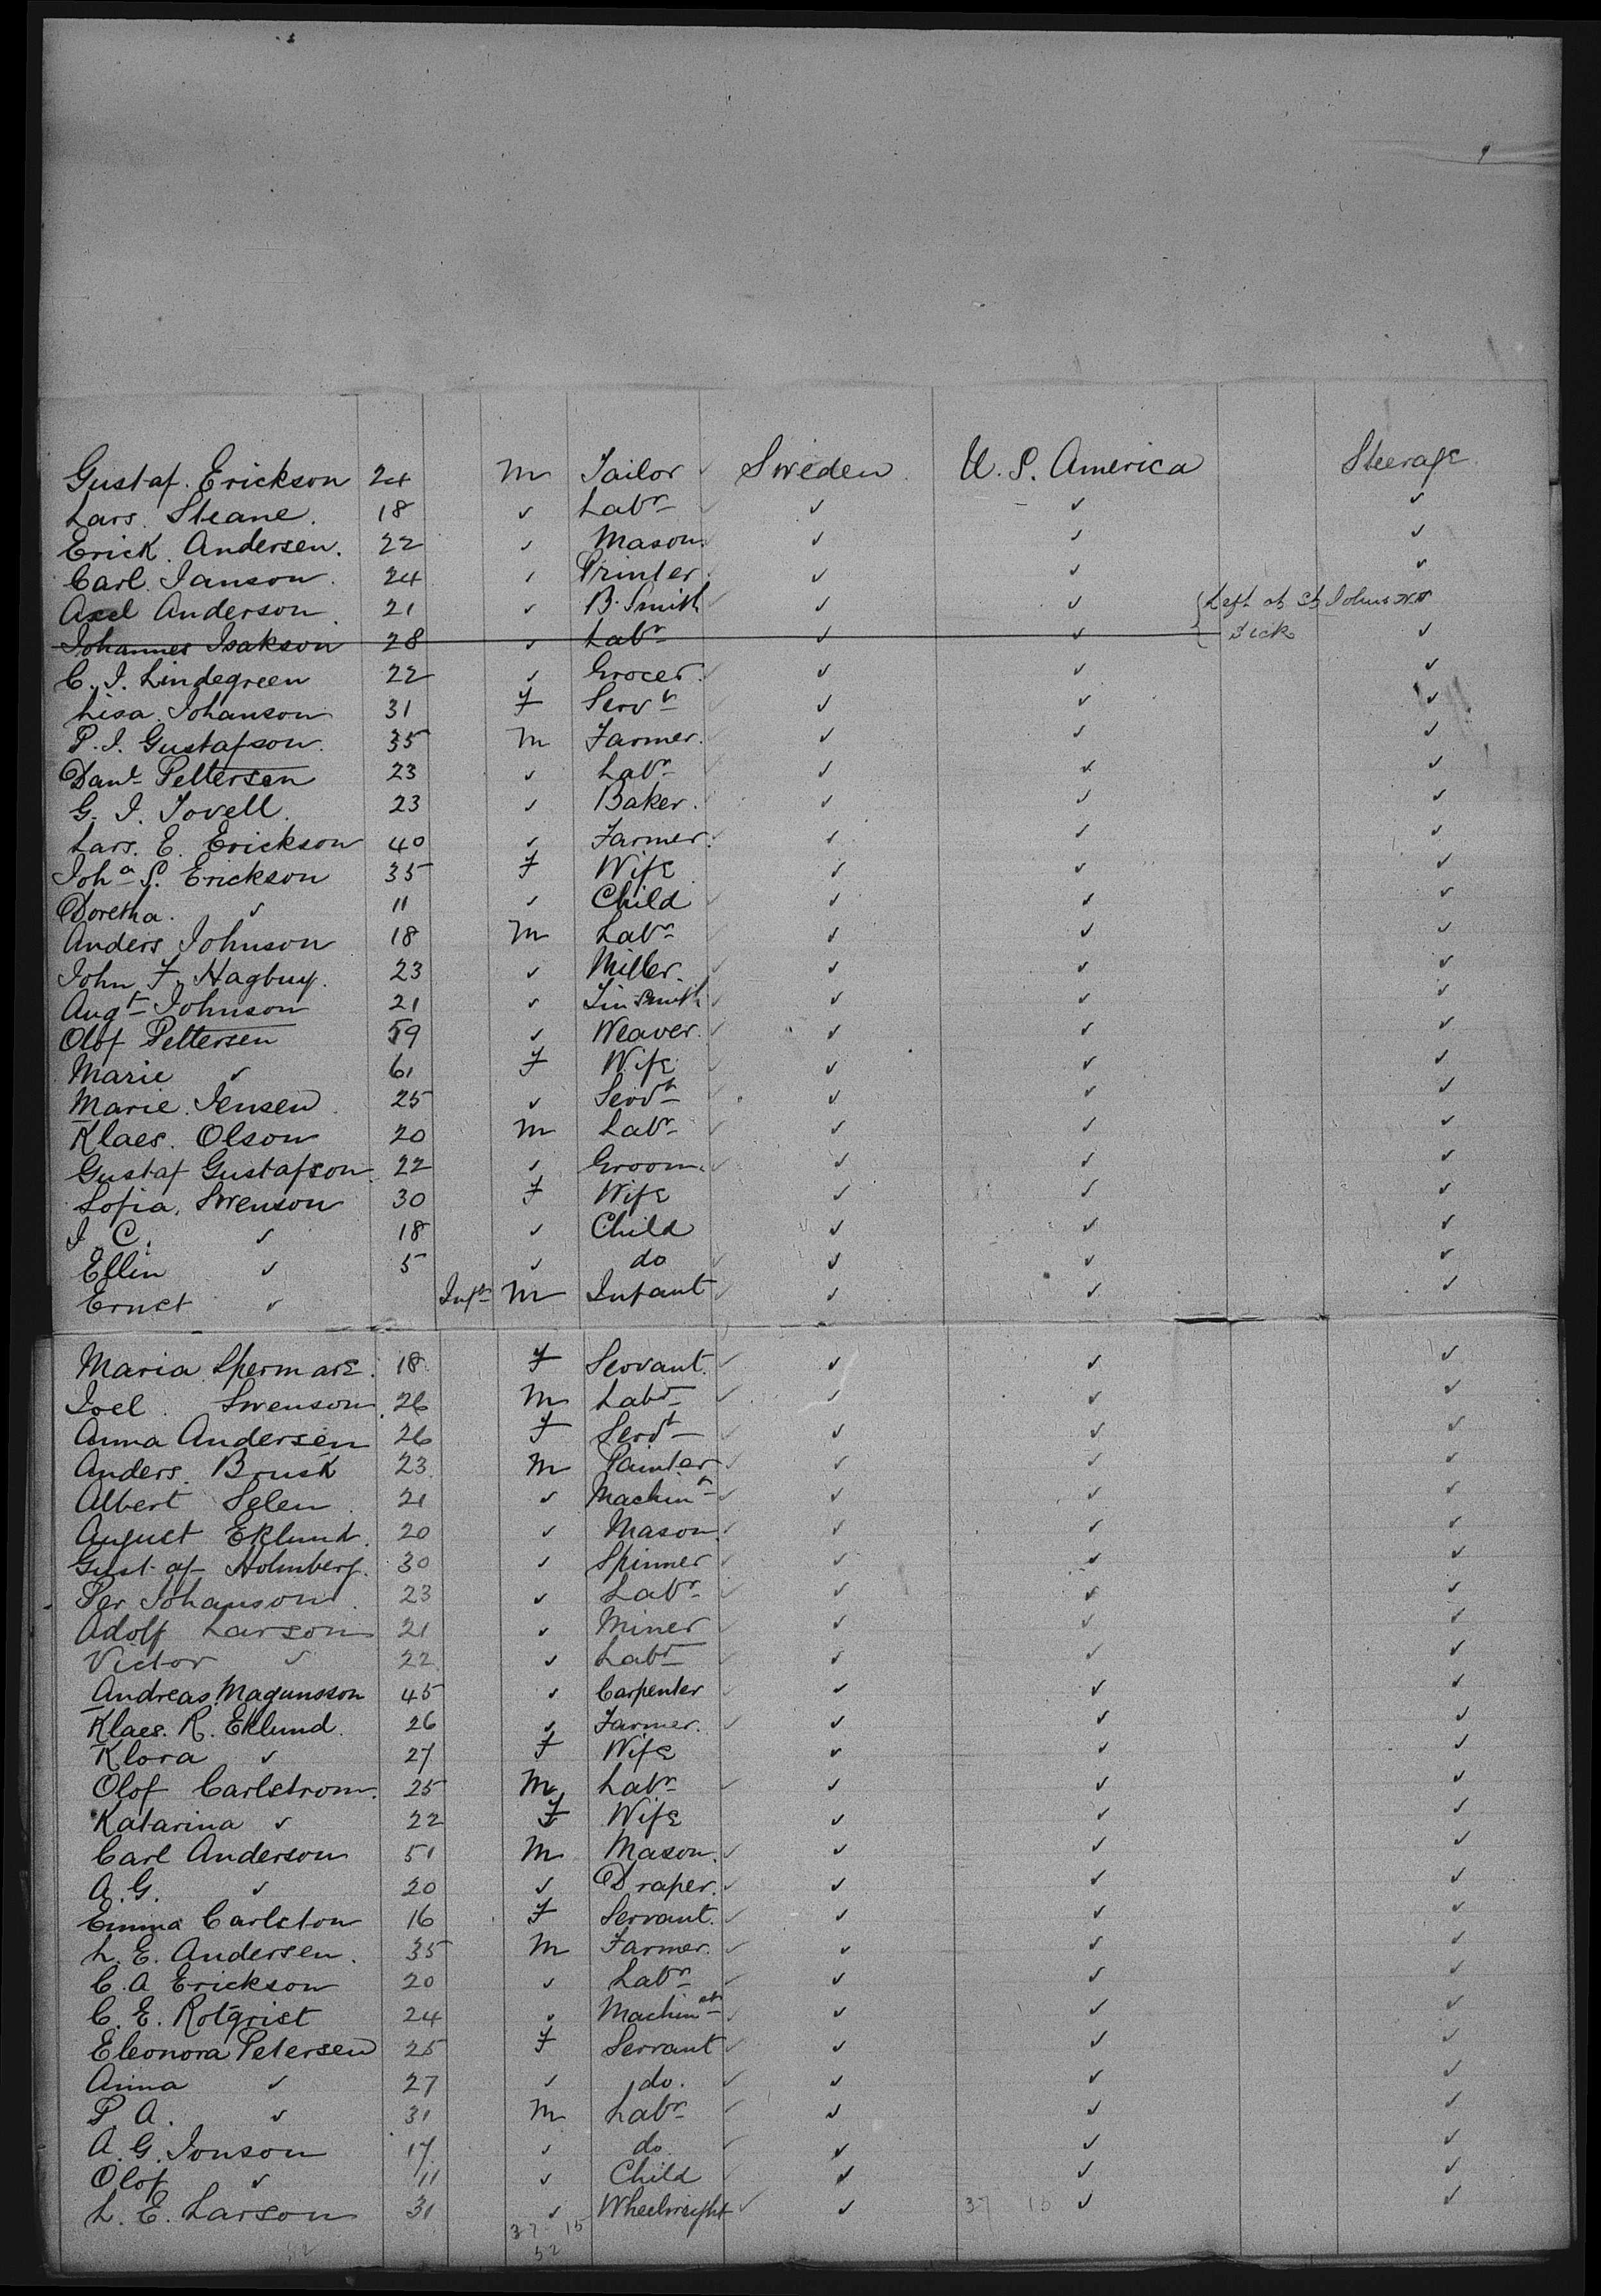 Gustaf. Erickson 24 m Tailor ✓ Sweden U. S. America Steerage
Lars. Steane. 18 ✓ Labr ✓ ✓ ✓ ✓
Erick. Andersen. 22 ✓ Mason. ✓ ✓ ✓
Carl Janson. 24 ✓ Printer. ✓ ✓ ✓
Axel Anderson. 21 ✓ B. Smith ✓ ✓ ✓ { Left at St Johns NF
Johannes Isakson 28 ✓ Labr ✓ ✓ { Sick ✓
C. J. Lindegreen 22 ✓ Grocer. ✓ ✓ ✓
Lisa Johanson 31 F Servt ✓ ✓ ✓ ✓
P. J. Gustafson. 35 m Farmer. ✓ ✓ ✓ ✓
Danl Pettersen 23 ✓ Labr ✓ ✓ ✓ ✓
G. J. Tovell. 23 ✓ Baker. ✓ ✓ ✓
Lars. E. Erickson 40 ✓ Farmer. ✓ ✓ ✓ ✓
Joha S. Erickson 35 F Wife ✓ ✓ ✓
Doretha. ✓ 11 ✓ Child ✓ ✓ ✓ ✓
Anders Johnson 18 m Labr ✓ ✓ ✓ ✓
John F. Hagbuy. 23 ✓ Miller. ✓ ✓ ✓ ✓
Augt Johnson 21 ✓ Tinsmith ✓ ✓ ✓ ✓
Olof Pettersen 59 ✓ Weaver. ✓ ✓ ✓ ✓
Marie ✓ 61 F Wife ✓ ✓ ✓ ✓
Marie. Jensen 25 ✓ Servt ✓ ✓ ✓ ✓
Klaes. Olson 20 m Labr ✓ ✓ ✓ ✓
Gustaf Gustafson. 22 ✓ Groom. ✓ ✓ ✓ ✓
Sofia. Swenson 30 F Wife ✓ ✓ ✓
J. C. ✓ 18 ✓ Child ✓ ✓ ✓
Ellin ✓ 5 ✓ do ✓ ✓ ✓ ✓
Ernst ✓ Inft m Infant ✓ ✓ ✓ ✓
Maria Spermare. 18 F Servant. ✓ ✓ ✓ ✓
Joel. Swenson. 26 m Labr ✓ ✓ ✓ ✓
Anna Andersen 26 F Servt ✓ ✓ ✓
Anders. Brusk 23 m Painter ✓ ✓ ✓ ✓
Albert Selen 21 ✓ Machint ✓ ✓ ✓ ✓
August Eklund. 20 ✓ Mason. ✓ ✓ ✓ ✓
Gustaf Holmberg. 30 ✓ Spinner ✓ ✓ ✓ ✓
Per Johanson. 23 ✓ Labr ✓ ✓ ✓ ✓
Adolf Larson 21 ✓ Miner ✓ ✓ ✓ ✓
Victor ✓ 22 ✓ Labr ✓ ✓ ✓ ✓
Andreas. Magunsson 45 ✓ Carpenter ✓ ✓ ✓ ✓
Klaes. R. Eklund. 26 ✓ Farmer. ✓ ✓ ✓ ✓
Klora ✓ 27 F Wife ✓ ✓ ✓
Olof Carlstrom. 25 m Labr ✓ ✓ ✓ ✓
Katarina ✓ 22 F Wife ✓ ✓ ✓
Carl Anderson 51 m Mason. ✓ ✓ ✓ ✓
A. G. ✓ 20 ✓ Draper. ✓ ✓ ✓ ✓
Emma Carlston 16 F Servant. ✓ ✓ ✓ ✓
L. E. Andersen. 35 m Farmer. ✓ ✓ ✓ ✓
C. A Erickson 20 ✓ Labr ✓ ✓ ✓ ✓
C. E. Rotqrist 24 ✓ Machinst ✓ ✓ ✓ ✓
Eleonora Petersen 25 F Servant ✓ ✓ ✓ ✓
Anna ✓ 27 ✓ do. ✓ ✓ ✓ ✓
P A. ✓ 31 m Labr ✓ ✓ ✓ ✓
A. G. Jonson 17 ✓ do. ✓ ✓ ✓ ✓
Olof ✓ 11 ✓ Child ✓ ✓ ✓ ✓
L. E. Larson 31 ✓ Wheelwright ✓ ✓ 37 15 ✓ ✓
37 15
52